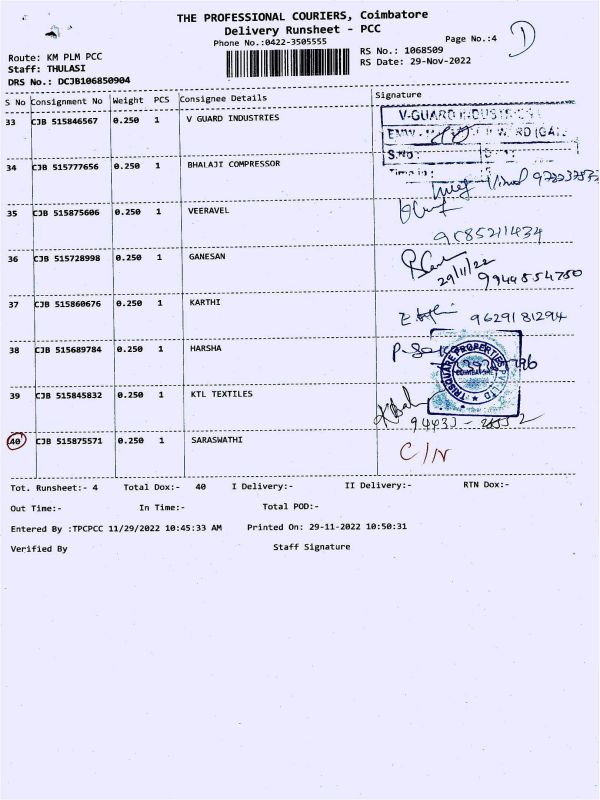 THE PROFESSIONAL COURIERS, Coimbatore
Delivery Runsheet - PCC
Phone No.:0422-3505555
Page No.:4
Route: KM PLM PCC
RS No.: 1068509
Staff: THULASI
RS Date: 29-Nov-2022
DRS No.: DCJB106850904
S No Consignment No Weight PCS Consignee Details Signature
33 CJB 515846567 0.250 1 V GUARD INDUSTRIES
V-GUARD
S.No:
34 CJB 515777656 0.250 1 BHALAJI COMPRESSOR
35 CJB 515875606 0.250 1 VEERAVEL
9585211434
36 CJB 515728998 0.250 1 GANESAN
29/11/22
9944554750
37 CJB 515860676 0.250 1 KARTHI
9629181294
38 CJB 515689784 0.250 1 HARSHA
TRISQUARE PROPERTIES PVT LTD
COIMBATORE
39 CJB 515845832 0.250 1 KTL TEXTILES
40 CJB 515875571 0.250 1 SARASWATHI
C/N
Tot. Runsheet:- 4 Total Dox:- 40 I Delivery:- II Delivery:- RTN Dox:-
Out Time:- In Time:- Total POD:-
Entered By :TPCPCC 11/29/2022 10:45:33 AM Printed On: 29-11-2022 10:50:31
Verified By Staff Signature